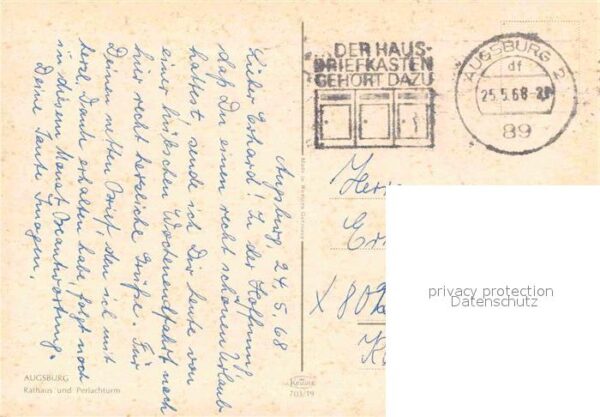 Augsburg 24.5.68
Lieber Erhard! In der Hoffnung,
daß Du einen recht schönen Urlaub
hattest, sende ich Dir heute von
einer hübschen Wochenendfahrt nach
hier recht herzliche Grüße. Für
Deinen netten Brief, den ich mit
herzl. Dank erhalten habe, folgt noch
in diesem Monat Beantwortung.
Deine Tante Imagen.
AUGSBURG
Rathaus und Perlachturm
DER HAUS-
BRIEFKASTEN
GEHÖRT DAZU
AUGSBURG 2
df
25.5.68
89
Krüger
703/19
Herrn
X 802
privacy protection
Datenschutz